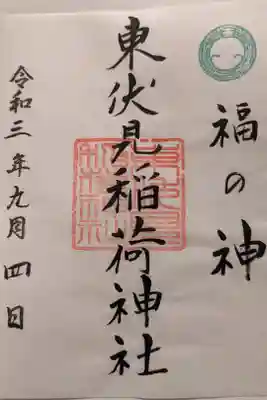 福の神
東伏見稲荷神社
令和三年九月四日